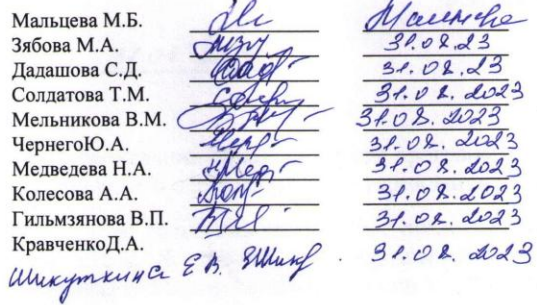 Мальцева М.Б.
Зябова М.А. 31.08.23
Дадашова С.Д. 31.08.23
Солдатова Т.М. 31.08.2023
Мельникова В.М. 31.08.2023
ЧернегоЮ.А. 31.08.2023
Медведева Н.А. 31.08.2023
Колесова А.А. 31.08.2023
Гильмзянова В.П. 31.08.2023
КравченкоД.А.
Шикуткина Е В. 31.08.2023